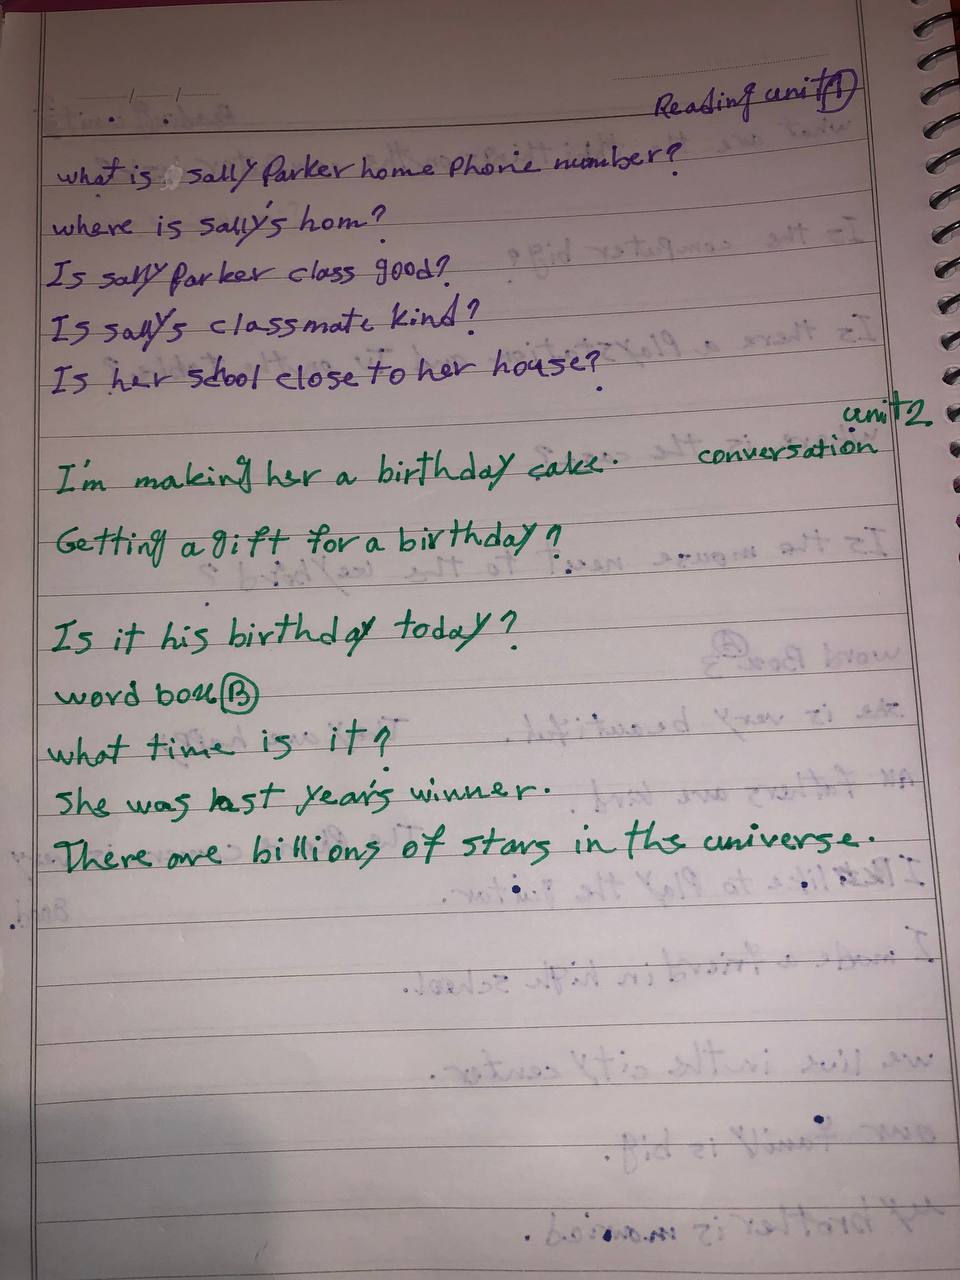 Reading unit 1
what is sally Parker home Phone number?
where is sally's hom?
Is sally Parker class good?
Is sally's classmate kind?
Is her school close to her house?
unit 2
conversation
I'm making her a birthday cake.
Getting a gift for a birthday?
Is it his birthday today?
word box B
what time is it?
She was last year's winner.
There are billions of stars in the universe.